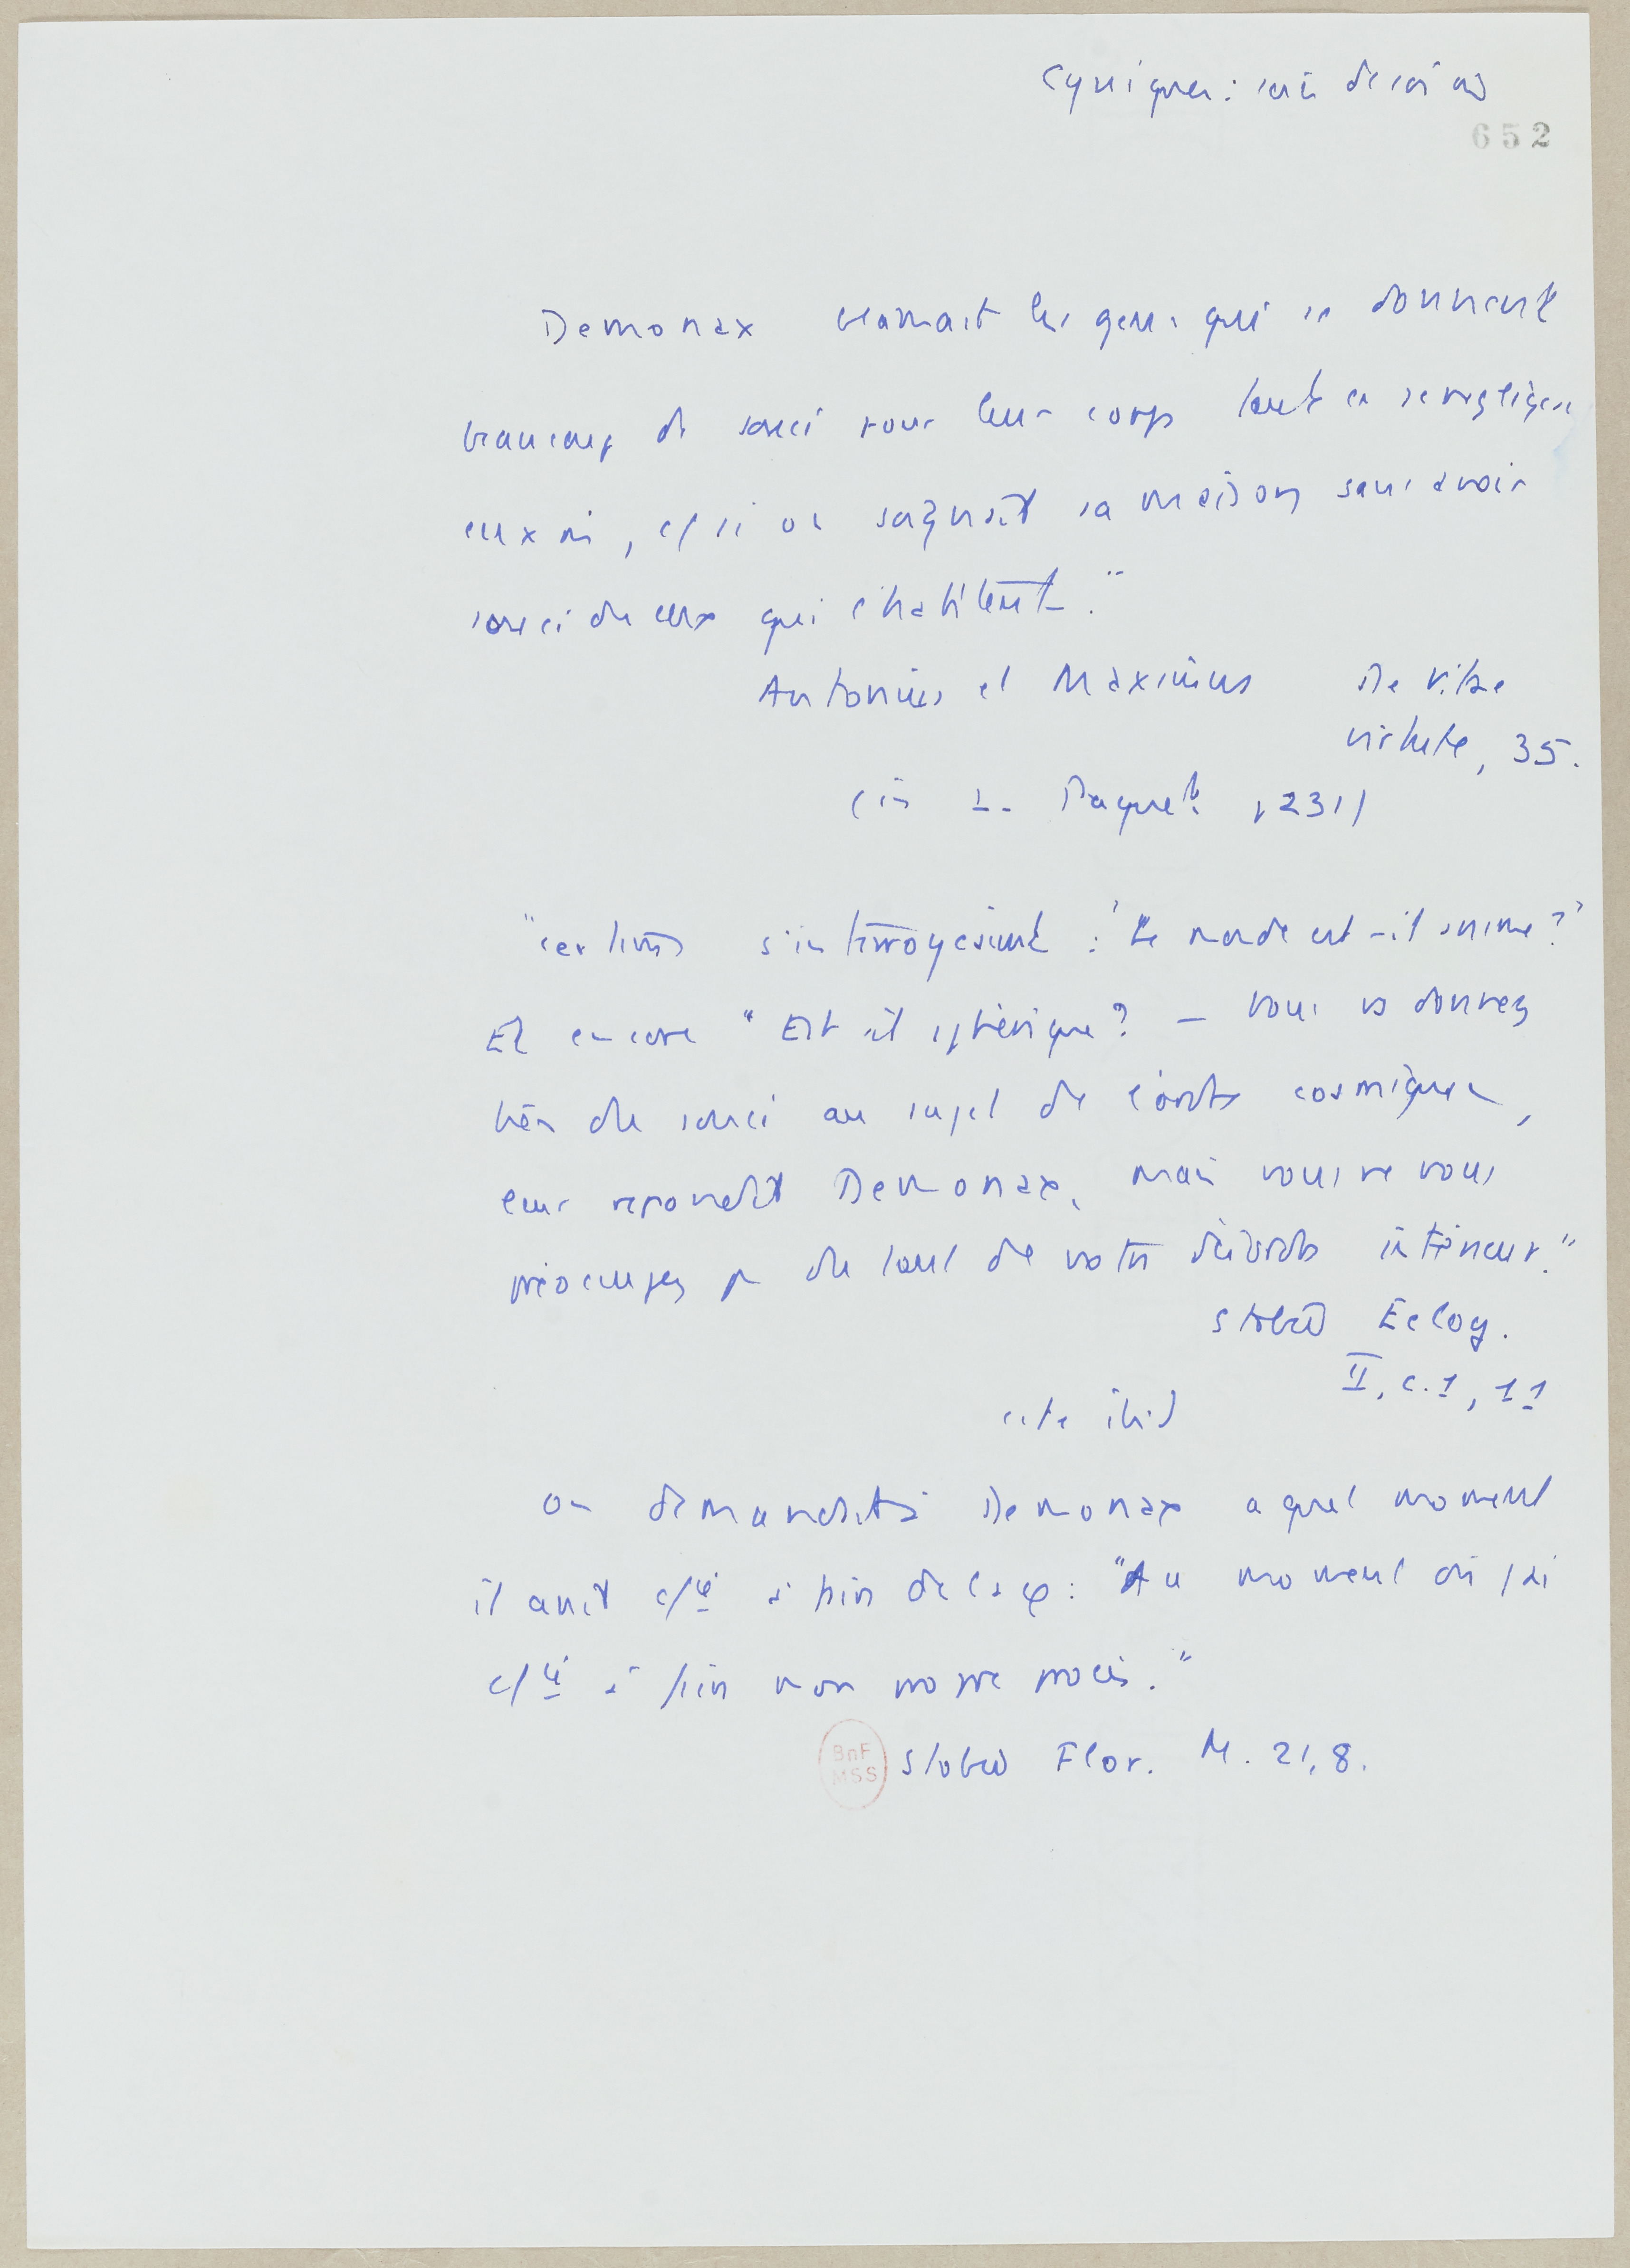 Cyniques : soin de soi
652
Demonax blamait les gens qui se donnent
beaucoup de souci pour leur corps tout en se negligeant
eux mˆ, c/ si on soignait sa maison sans avoir
souci de ceux qui l'habitent."
Antonius et Maximus De vitae
virtute, 35.
(in L. Paquet p 231)
"Certains s'interrogeaient : 'Le monde est-il anime?'
Et encore "Est il sphérique? — Vous vs donnez
bien du souci au sujet de l'ordre cosmique,
leur repondit Demonax, mais vous ne vous
préoccupez pas du tout de votre désordre intérieur."
Stobée Eclog.
II, c.1, 11
cite ibid
On demandait à Demonax a quel moment
il avait c/cé à φ: "Au moment où j'ai
c/cé à mon propre procès."
Stobée Flor. M. 21, 8.
BnF
MSS